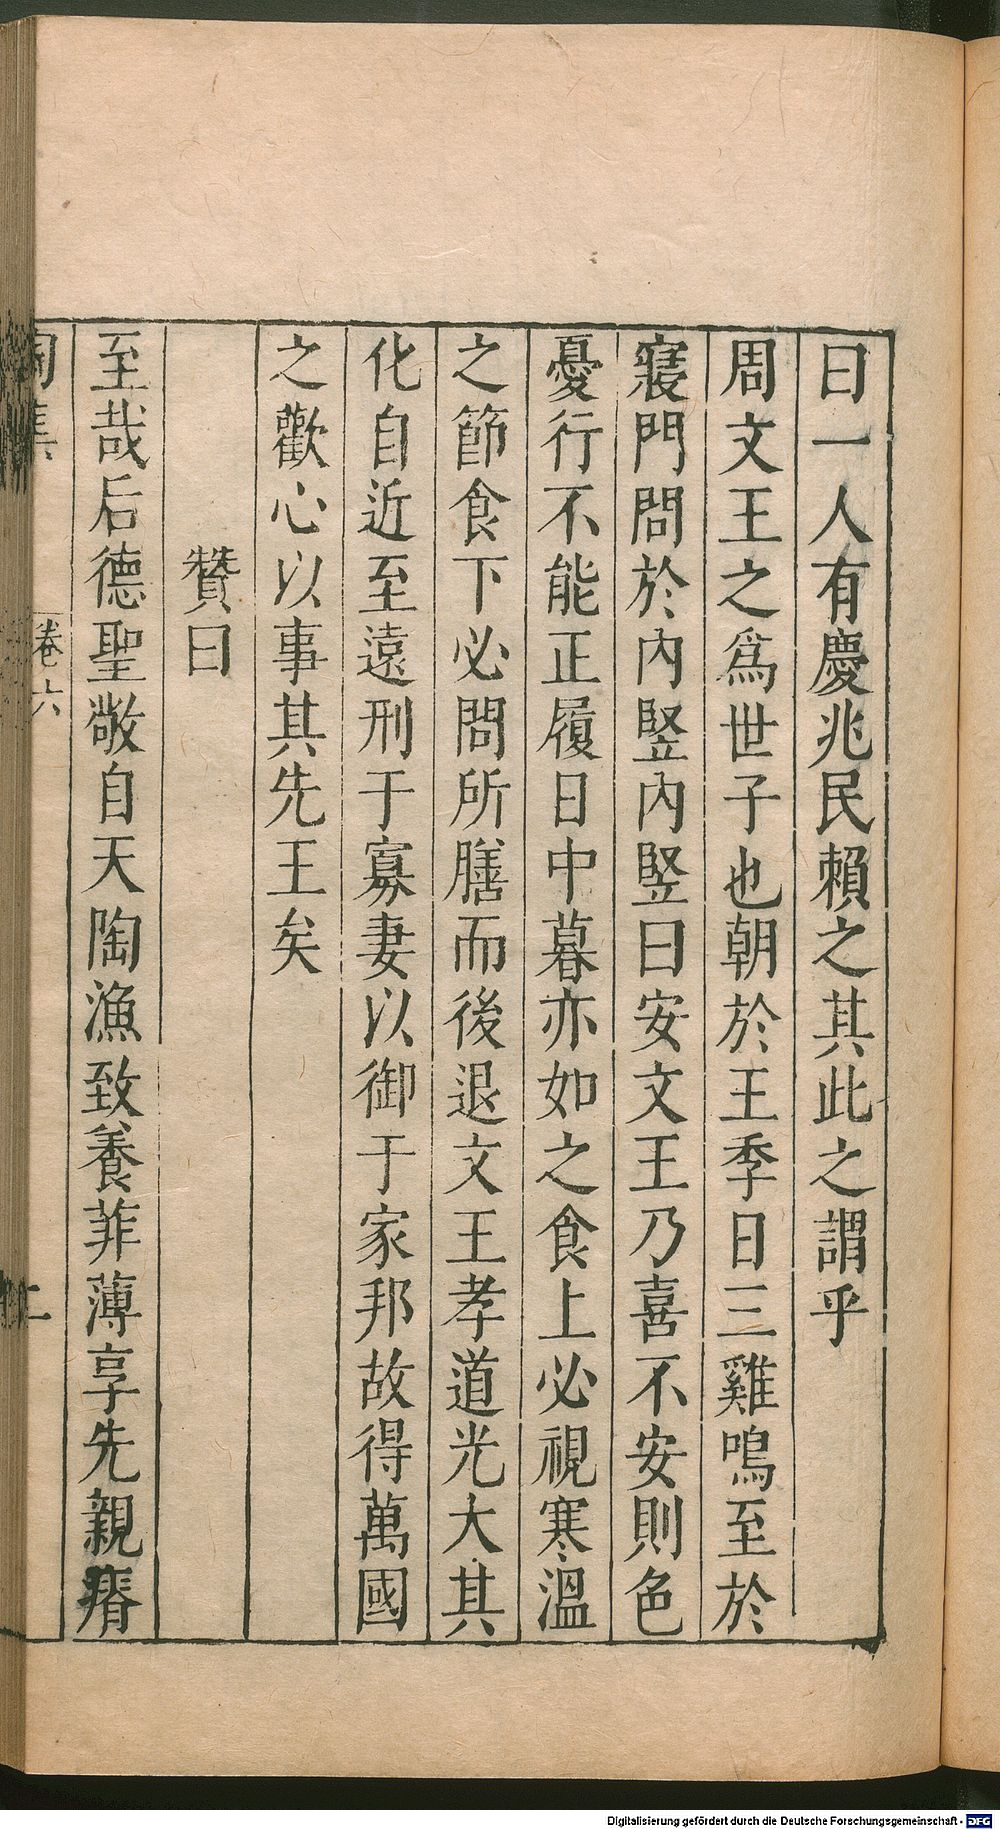 曰一人有慶兆民賴之其此之謂乎
周文王之爲世子也朝於王季日三雞鳴至於
寢門問於內竪內竪曰安文王乃喜不安則色
憂行不能正履日中暮亦如之食上必視寒溫
之節食下必問所膳而後退文王孝道光大其
化自近至遠刑于寡妻以御于家邦故得萬國
之歡心以事其先王矣
贊曰
至哉后德聖敬自天陶漁致養菲薄享先親瘠
陶集 卷六 二
Digitalisierung gefördert durch die Deutsche Forschungsgemeinschaft - DFG